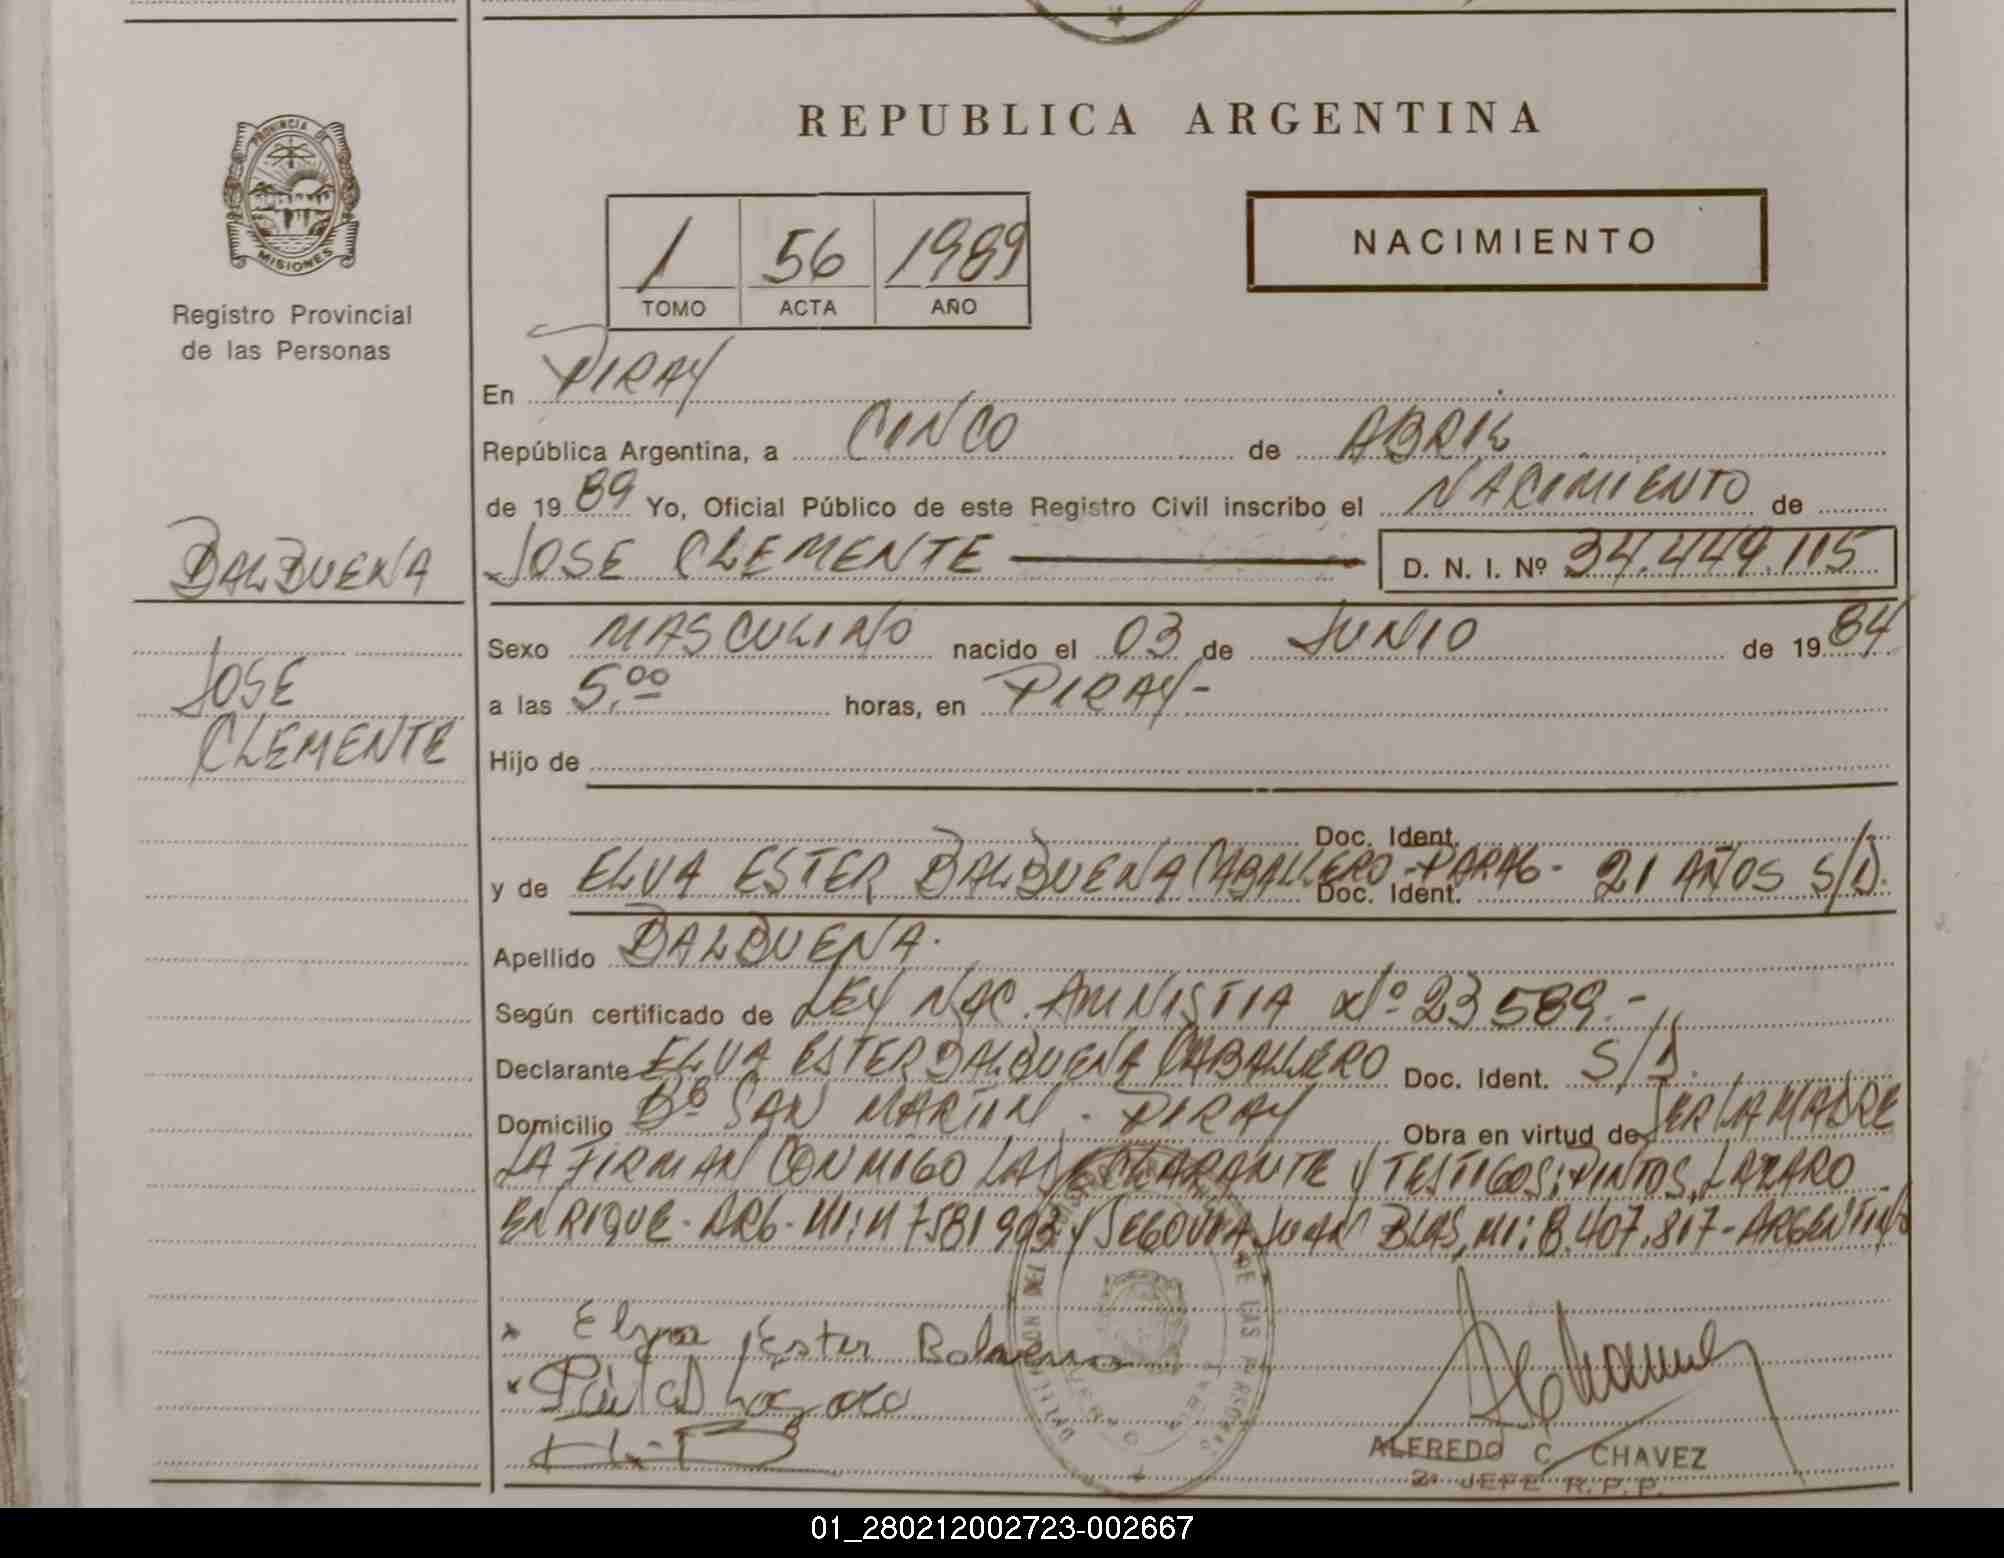 REPUBLICA ARGENTINA
PROVINCIA DE
MISIONES
Registro Provincial
de las Personas
1 56 1989
TOMO ACTA AÑO
NACIMIENTO
En PIRAY
República Argentina, a CINCO de ABRIL
de 1989 Yo, Oficial Público de este Registro Civil inscribo el NACIMIENTO de
BALBUENA
JOSE CLEMENTE D. N. I. Nº 34.449.115
JOSE
CLEMENTE
Sexo MASCULINO nacido el 03 de JUNIO de 1984
a las 5,00 horas, en PIRAY-
Hijo de
Doc. Ident.
y de ELVA ESTER BALBUENA CABALLERO-PARAG- 21 AÑOS S/D.
Doc. Ident.
Apellido BALBUENA.
Según certificado de LEY NAC. AMNISTIA Nº 23589.-
Declarante ELVA ESTER BALBUENA CABALLERO Doc. Ident. S/D.
Domicilio Bº SAN MARTIN. PIRAY Obra en virtud de SER LA MADRE
LA FIRMAN CONMIGO LA DECLARANTE Y TESTIGOS: PINTOS, LAZARO
ENRIQUE- ARG- MI: 7581993 Y SEGOVIA JUAN BLAS, MI: 8.407.817-ARGENTINO
DE LAS PERSONAS
Ester
ALFREDO C. CHAVEZ
2º JEFE R.P.P.
01_280212002723-002667